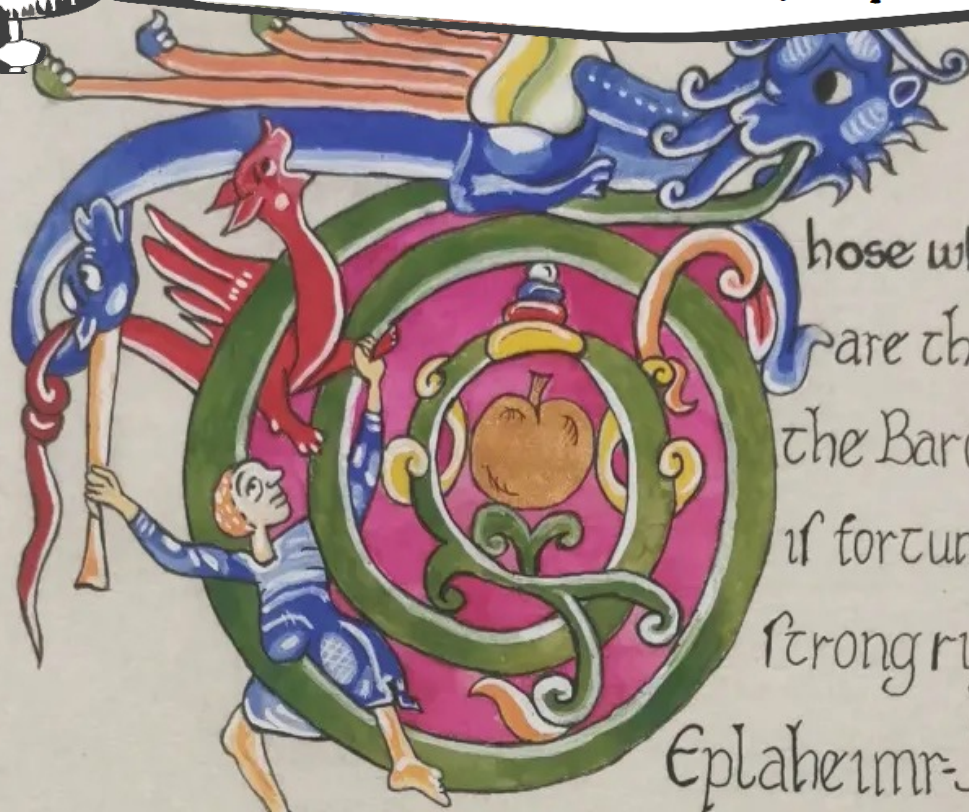 Those wh
are th
the Baro
if fortun
strong ru
Eplaheimr-